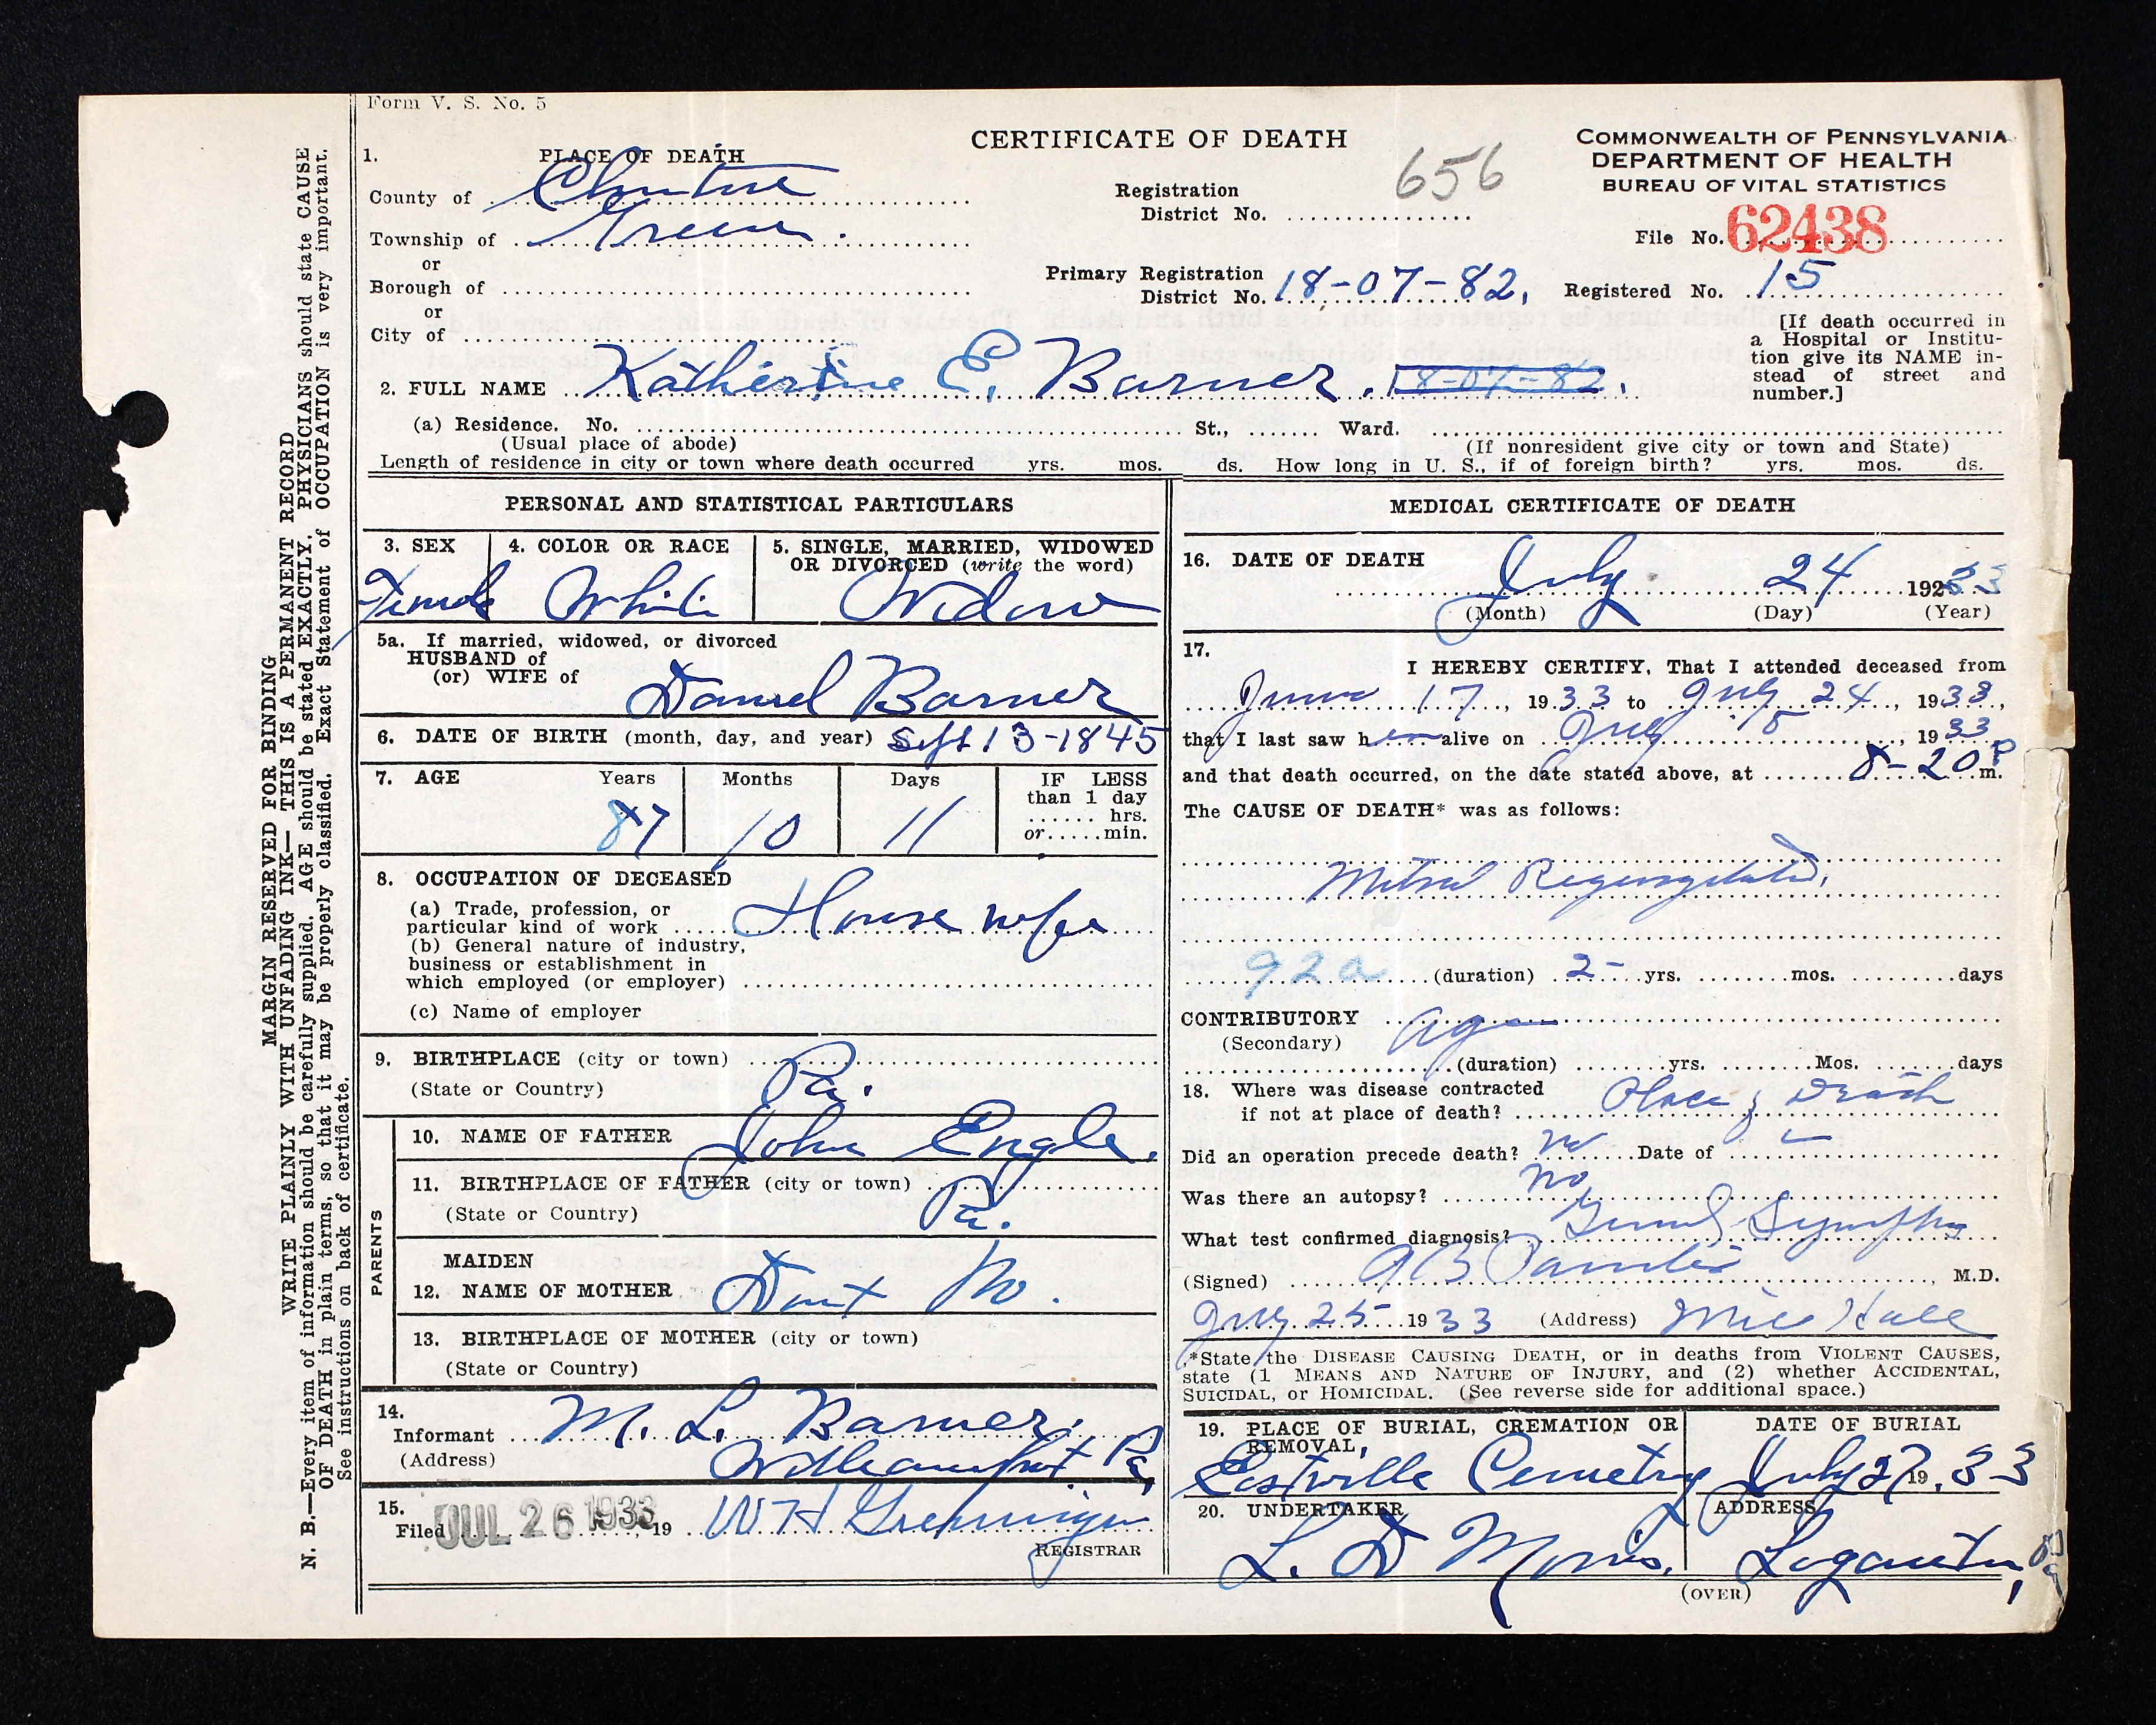 Form V. S. No. 5
CERTIFICATE OF DEATH
COMMONWEALTH OF PENNSYLVANIA
DEPARTMENT OF HEALTH
BUREAU OF VITAL STATISTICS
1. PLACE OF DEATH
County of Clinton
Township of Green.
or
Borough of
or
City of
Registration
District No.
656
File No. 62438
Primary Registration
District No. 18-07-82.
Registered No. 15
[If death occurred in
a Hospital or Institu-
tion give its NAME in-
stead of street and
number.]
2. FULL NAME Katherine E. Barner. 18-07-82.
(a) Residence. No. St., Ward.
(Usual place of abode) (If nonresident give city or town and State)
Length of residence in city or town where death occurred yrs. mos. ds. How long in U. S., if of foreign birth? yrs. mos. ds.
PERSONAL AND STATISTICAL PARTICULARS
3. SEX
Female
4. COLOR OR RACE
White
5. SINGLE, MARRIED, WIDOWED
OR DIVORCED (write the word)
Widow
5a. If married, widowed, or divorced
HUSBAND of
(or) WIFE of
Daniel Barner
6. DATE OF BIRTH (month, day, and year) Sept 13-1845
7. AGE Years Months Days IF LESS
than 1 day
hrs.
or min.
87 10 11
8. OCCUPATION OF DECEASED
(a) Trade, profession, or
particular kind of work House wife
(b) General nature of industry,
business or establishment in
which employed (or employer)
(c) Name of employer
9. BIRTHPLACE (city or town)
(State or Country) Pa.
PARENTS
10. NAME OF FATHER John Engle.
11. BIRTHPLACE OF FATHER (city or town)
(State or Country) Pa.
MAIDEN
12. NAME OF MOTHER Dont No.
13. BIRTHPLACE OF MOTHER (city or town)
(State or Country)
14.
Informant M. L. Barner.
(Address) Williamsport Pa
15.
Filed JUL 26 1933 19 W H
REGISTRAR
MEDICAL CERTIFICATE OF DEATH
16. DATE OF DEATH
July 24 192 33
(Month) (Day) (Year)
17.
I HEREBY CERTIFY, That I attended deceased from
June 17, 1933 to July 24, 1933,
that I last saw her alive on July 1933
and that death occurred, on the date stated above, at 8-20 P m.
The CAUSE OF DEATH* was as follows:
Mitral Regurgitation.
92a (duration) 2- yrs. mos. days
CONTRIBUTORY age
(Secondary)
(duration) yrs. Mos. days
18. Where was disease contracted
if not at place of death? Place of Death
Did an operation precede death? no Date of
Was there an autopsy? no
What test confirmed diagnosis?
(Signed) M.D.
July 25 1933 (Address) Mill Hall
*State the DISEASE CAUSING DEATH, or in deaths from VIOLENT CAUSES,
state (1 MEANS AND NATURE OF INJURY, and (2) whether ACCIDENTAL,
SUICIDAL, or HOMICIDAL. (See reverse side for additional space.)
19. PLACE OF BURIAL, CREMATION OR
REMOVAL,
Eastville Cemetry
DATE OF BURIAL
July 27 19.33
20. UNDERTAKER
L. D Morris.
ADDRESS
Loganton, Pa
(OVER)
MARGIN RESERVED FOR BINDING
WRITE PLAINLY WITH UNFADING INK— THIS IS A PERMANENT RECORD
N. B.—Every item of information should be carefully supplied. AGE should be stated EXACTLY. PHYSICIANS should state CAUSE
OF DEATH in plain terms, so that it may be properly classified. Exact Statement of OCCUPATION is very important.
See instructions on back of certificate.